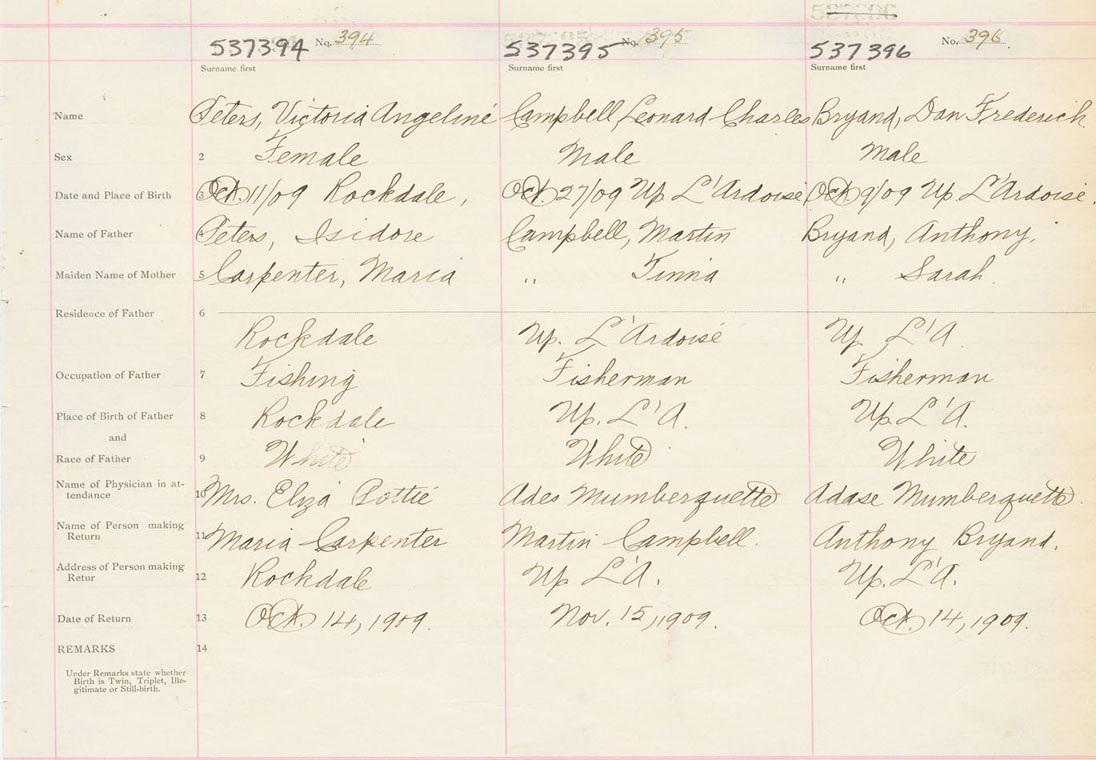 537394 No. 394 537395 No. 395 537396 No. 396
Surname first Surname first Surname first
Name Peters, Victoria Angeliné Campbell, Leonard Charles Bryand, Dan Frederick
Sex 2 Female Male Male
Date and Place of Birth 3 Oct. 11/09 Rockdale, Oct. 27/09 Up L'Ardoise Oct 9/09 Up L'Ardoise.
Name of Father 4 Peters, Isidore Campbell, Martin Bryand, Anthony.
Maiden Name of Mother 5 Carpenter, Maria " Tinna " Sarah
Residence of Father 6
Rockdale Up. L'Ardoisé Up L'A.
Occupation of Father 7 Fishing Fisherman Fisherman
Place of Birth of Father 8 Rockdale Up. L'A. Up. L'A.
and
Race of Father 9 White White White
Name of Physician in at-
tendance 10 Mrs. Eliza Pottié Ades Mumberquette Adase Mumberquette.
Name of Person making
Return 11 Maria Carpenter Martin Campbell. Anthony Bryand.
Address of Person making
Retur 12 Rockdale Up L'A. Up. L'A.
Date of Return 13 Oct. 14, 1909. Nov. 15, 1909. Oct. 14, 1909.
REMARKS 14
Under Remarks state whether
Birth is Twin, Triplet, Ille-
gitimate or Still-birth.